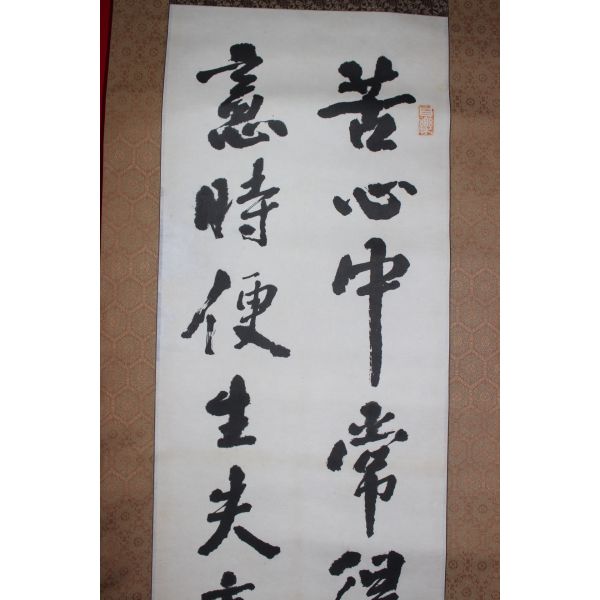 苦心中常得
意時便生失意